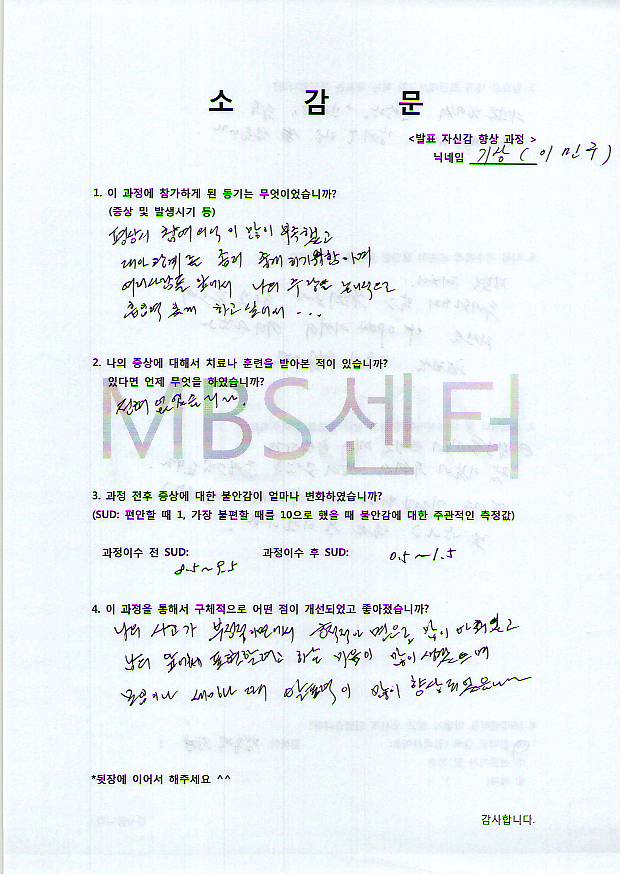 소 감 문
<발표 자신감 향상 과정 >
닉네임 기상 ( 이 민 구 )
1. 이 과정에 참가하게 된 동기는 무엇이었습니까?
(증상 및 발생시기 등)
평상시 참여의식이 많이 부족했고
대인관계도 좀더 좋게 하기위함이며
여러사람들 앞에서 나의 주장을
하고 싶어서 ...
2. 나의 증상에 대해서 치료나 훈련을 받아본 적이 있습니까?
있다면 언제 무엇을 하였습니까?
전혀 없었습니다.
MBS센터
3. 과정 전후 증상에 대한 불안감이 얼마나 변화하였습니까?
(SUD: 편안할 때 1, 가장 불편할 때를 10으로 했을 때 불안감에 대한 주관적인 측정값)
과정이수 전 SUD: 8.5~9.5 과정이수 후 SUD: 0.5~1.5
4. 이 과정을 통해서 구체적으로 어떤 점이 개선되었고 좋아졌습니까?
나의 사고가 부정적인면에서 긍정적인 면으로 많이 바뀌었고
표현할려고 하는 마음이 많이 생겼으며
발표력이 많이 향상되었음
*뒷장에 이어서 해주세요 ^^
감사합니다.